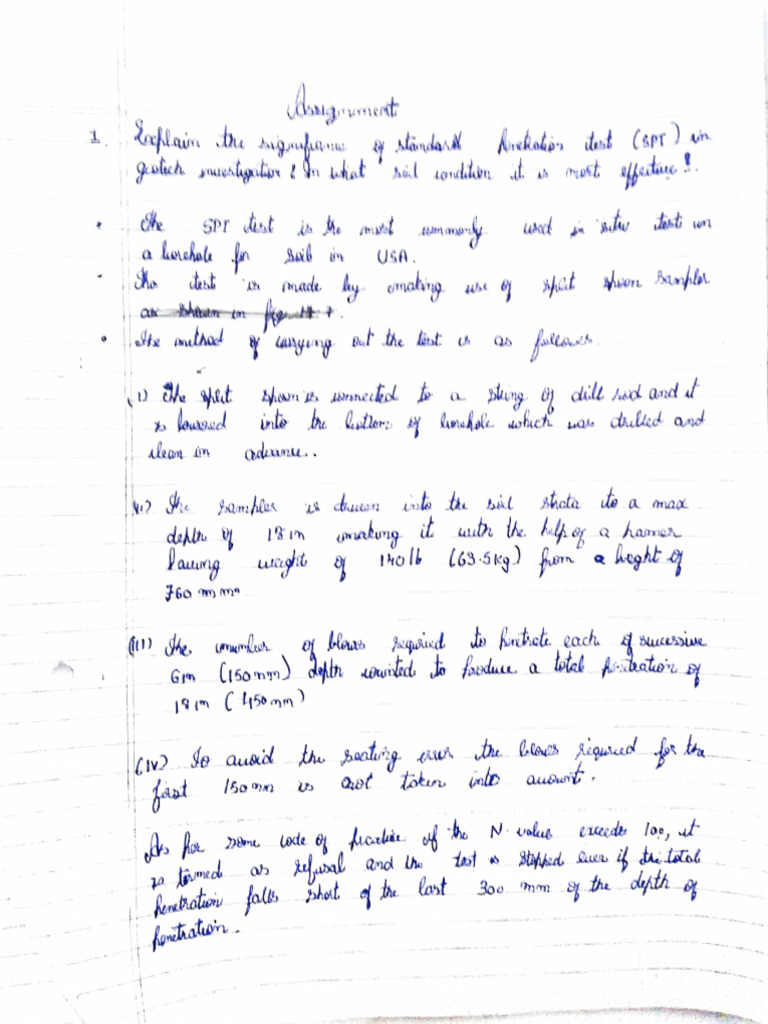 Assignment
1. Explain the significance of standard Penetration test (SPT) in
geotech investigation? In what soil condition it is most effective?
• The SPT test is the most commonly used in situ test in
a borehole for soil in USA.
• The test is made by making use of split spoon sampler
as shown in fig. 17.7.
• The method of carrying out the test is as follows.
(i) The split spoon is connected to a string of drill rod and it
is lowered into the bottom of borehole which was drilled and
clean in advance..
(ii) The sampler is driven into the soil strata to a max
depth of 18 in making it with the help of a hamer
having weight of 140 lb (63.5kg) from a height of
760 mm.
(iii) The number of blows required to penetrate each of successive
6in (150mm) depth counted to produce a total pentration of
18 in (450mm)
(iv) To avoid the seating error the blows required for the
first 150mm is not taken into amount.
As per some code of practice if the N-value exceeds 100, it
is termed as refusal and the test is stopped even if the total
penetration falls short of the last 300 mm of the depth of
penetration.